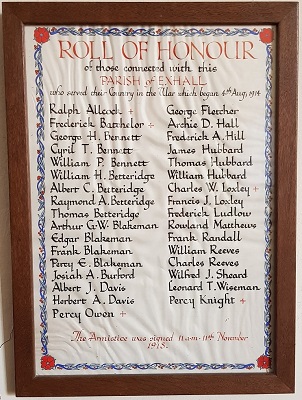 ROLL OF HONOUR
of those connected with this
PARISH of EXHALL
who served their Country in the War which began 4th Aug. 1914
Ralph Allcock +
Frederick Batchelor +
George H. Bennett
Cyril T. Bennett
William P. Bennett
William H. Betteridge
Albert C. Betteridge
Raymond A. Betteridge
Thomas Betteridge
Arthur G.W. Blakeman
Edgar Blakeman
Frank Blakeman
Percy E. Blakeman
Josiah A. Burford
Albert J. Davis
Herbert A. Davis
Percy Owen +
George Fletcher
Archie D. Hall
Frederick A. Hill
James Hubbard
Thomas Hubbard
William Hubbard
Charles W. Loxley +
Francis J. Loxley
Frederick Ludlow
Rowland Matthews
Frank Randall
William Reeves
Charles Reeves
Wilfred J. Sheard
Leonard T. Wiseman
Percy Knight +
The Armistice was signed 11 a.m. 11th November
1918.